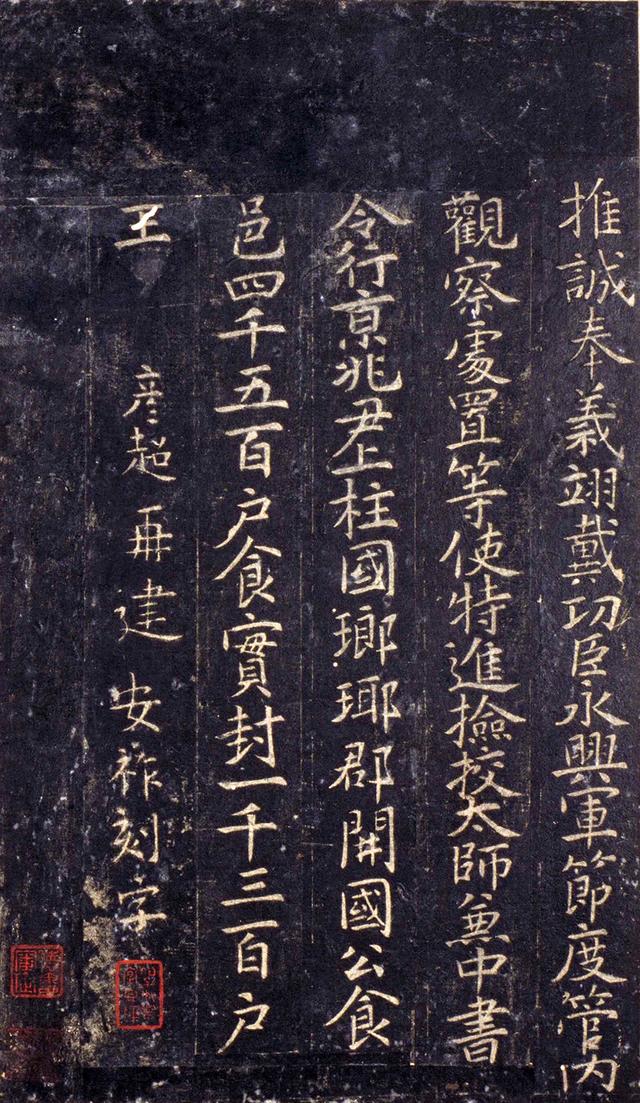 推誠奉義翊戴功臣永興軍節度管内
觀察處置等使特進撿挍太師兼中書
令行京兆尹上柱國瑯瑘郡開國公食
邑四千五百户食實封一千三百户
王 彦超再建 安祚刻字